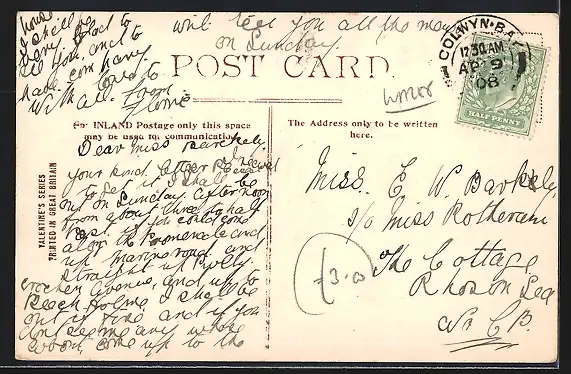 will tell you all the
on Sunday.
POST CARD.
COLWYN-BAY
12.30 AM
AP 9
08
HALF PENNY
For INLAND Postage only this space
may be used for communication.
The Address only to be written
here.
VALENTINE'S SERIES
PRINTED IN GREAT BRITAIN
Dear Miss Barkely,
your kind letter
to get it I shall be
out on Sunday afternoon
from about three to half
past, if you could come
along the promenade and
up marine road and
straight up
avenue, and up to
Beech Holme I shall be
out if fine and if you
dont see me any where
about, come up to the
house
I shall be
very glad to
see you, and to
have company
love to
with all from
Florrie
Miss. E W Barkely,
c/o Miss Rotheram
The Cottage
Rhos on Sea
Nr C B.